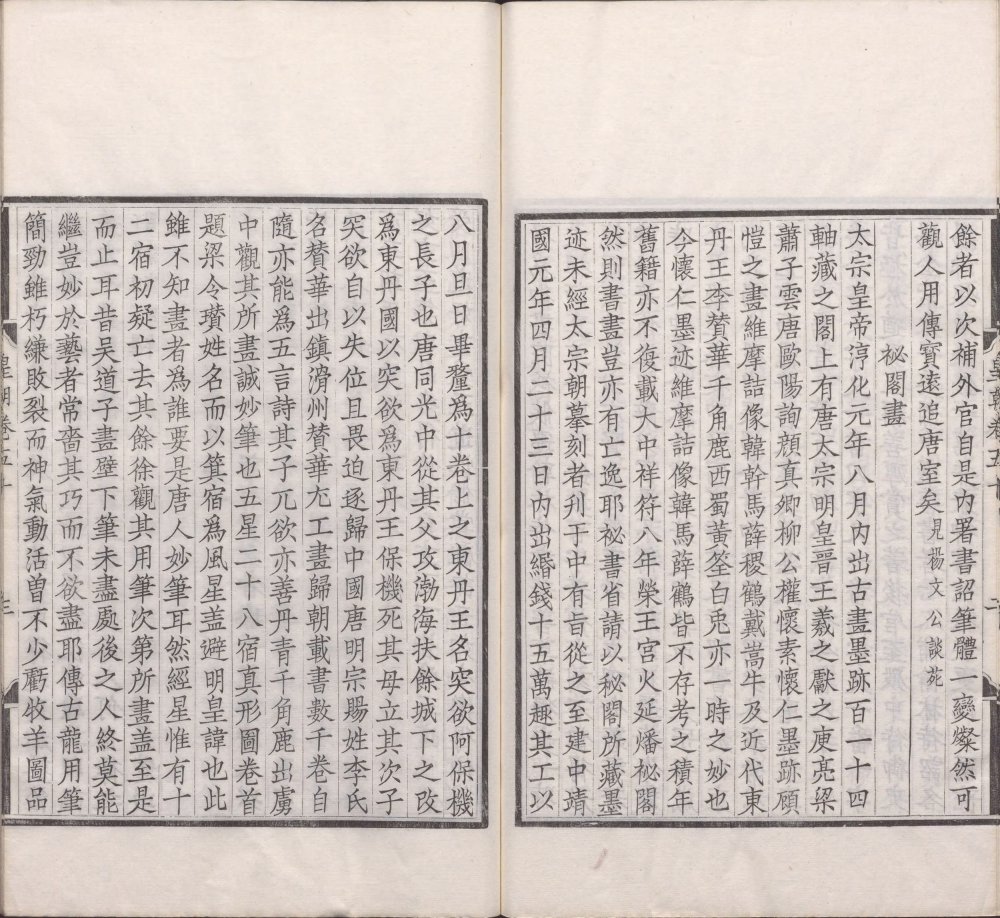 餘者以次補外官自是内署書詔筆體一變燦然可
觀人用傳寳遠追唐室矣見楊文公談苑
祕閣畫
太宗皇帝淳化元年八月内出古畫墨跡百一十四
軸藏之閣上有唐太宗明皇晉王羲之獻之庾亮梁
蕭子雲唐歐陽詢顔真卿柳公權懷素懷仁墨跡顧
愷之畫維摩詰像韓幹馬薛稷鶴戴嵩牛及近代東
丹王李贊華千角鹿西蜀黃筌白兎亦一時之妙也
今懷仁墨迹維摩詰像韓馬薛鶴皆不存考之積年
舊籍亦不復載大中祥符八年榮王宫火延燔祕閣
然則書畫豈亦有亡逸耶祕書省請以秘閣所藏墨
迹未經太宗朝摹刻者刋于中有㫖從之至建中靖
國元年四月二十三日内出緡錢十五萬趣其工以
八月旦日畢釐爲十卷上之東丹王名突欲阿保機
之長子也唐同光中從其父攻渤海扶餘城下之改
爲東丹國以突欲爲東丹王保機死其母立其次子
突欲自以失位且畏迫逐歸中國唐明宗賜姓李氏
名贊華出鎮滑州贊華尤工畫歸朝載書數千卷自
隨亦能爲五言詩其子兀欲亦善丹青千角鹿出虜
中觀其所畫誠妙筆也五星二十八宿真形圖卷首
題梁令瓚姓名而以箕宿爲風星盖避明皇諱也此
雖不知畫者爲誰要是唐人妙筆耳然經星惟有十
二宿初疑亡去其餘徐觀其用筆次第所畫盖至是
而止耳昔吴道子畫壁下筆未盡處後之人終莫能
繼豈妙於藝者常嗇其巧而不欲盡耶傳古龍用筆
簡勁雖朽縑敗裂而神氣動活曾不少虧牧羊圖品